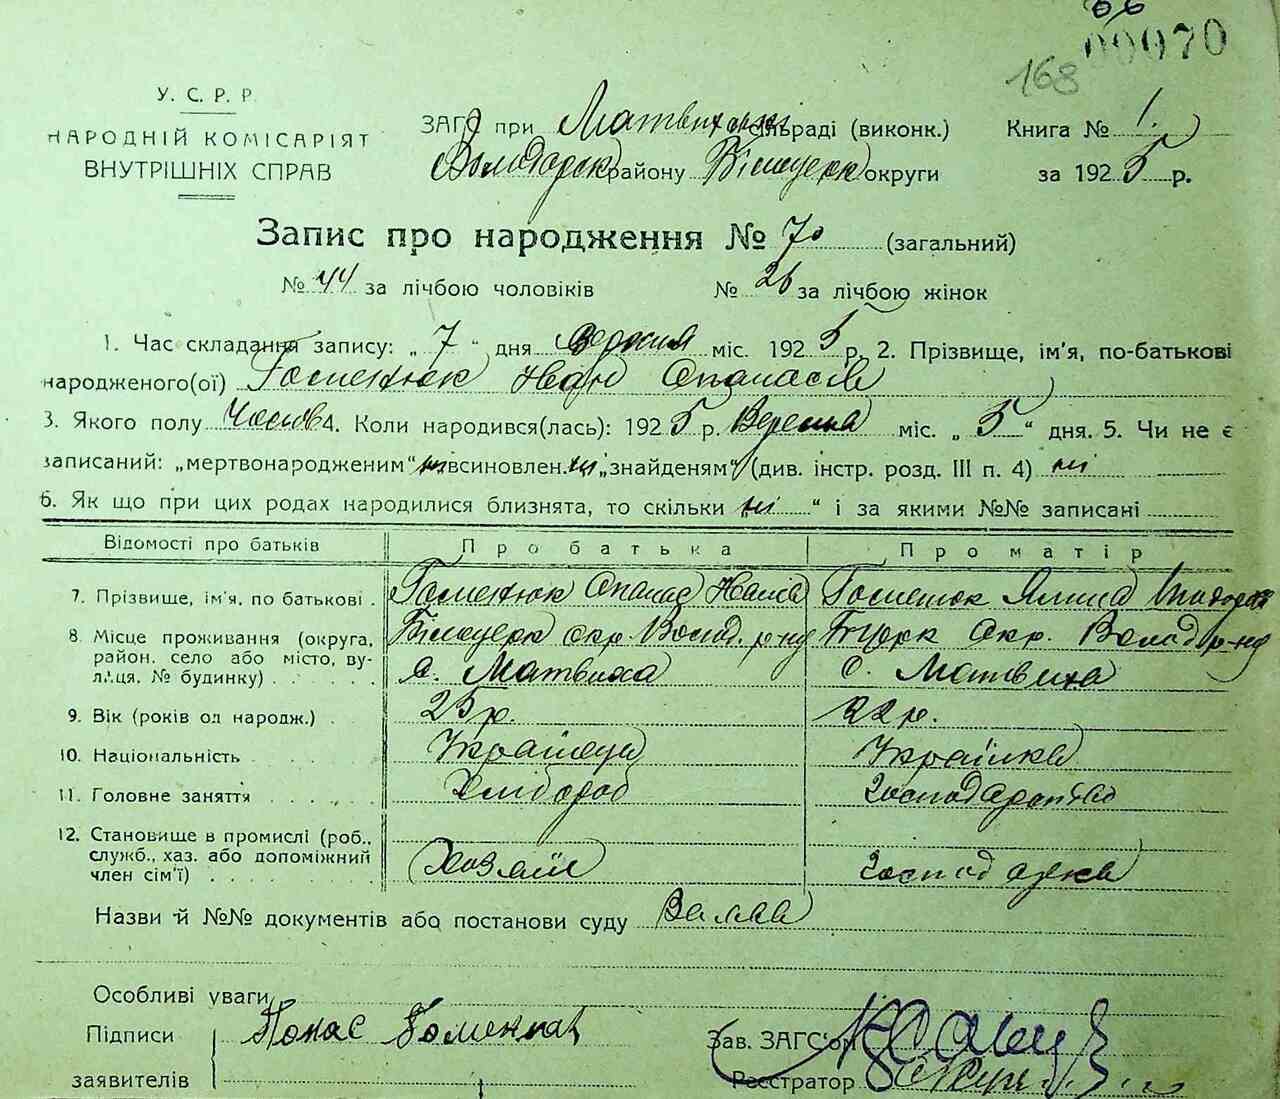 00070
168
У. С. Р. Р.
НАРОДНІЙ КОМІСАРІЯТ
ВНУТРІШНІХ СПРАВ
ЗАГС при Матвихскій сільраді (виконк.) Книга № 1.
Володарск району Білоцерк округи за 1925 р.
Запис про народження № 70 (загальний)
№ 44 за лічбою чоловіків № 26 за лічбою жінок
1. Час складання запису: „ 7 “ дня вересня міс. 1925 р. 2. Прізвище, ім’я, по-батькові
народженого(ої) Гоменюк Иван Опанасів
3. Якого полу Чолов 4. Коли народився(лась): 1925 р. Вересня міс. „ 5 “ дня. 5. Чи не є
записаний: „мертвонародженим“ ні всиновлен. ні „знайденям“ (див. інстр. розд. III п. 4) ні
6. Як що при цих родах народилися близнята, то скільки „ ні “ і за якими №№ записані
Відомості про батьків Про батька Про матір
7. Прізвище, ім’я, по батькові . Гоменюк Опанас Иванів Гоменюк
8. Місце проживання (округа, район, село або місто, вулиця, № будинку) Білоцерк окр. Волод. р-ну Бцерк Окр. Волод р-ну
с. Матвиха с. Матвиха
9. Вік (років од народж.) . 25 р. 22 р.
10. Національність Українец Українка
11. Головне заняття Хлібороб Господарство
12. Становище в промислі (роб., служб., хаз. або допоміжний член сім’ї) Хазяїн Господарка
Назви й №№ документів або постанови суду
Особливі уваги
Підписи заявителів Панас Гоменюк
Зав. ЗАГС’ом
Реєстратор